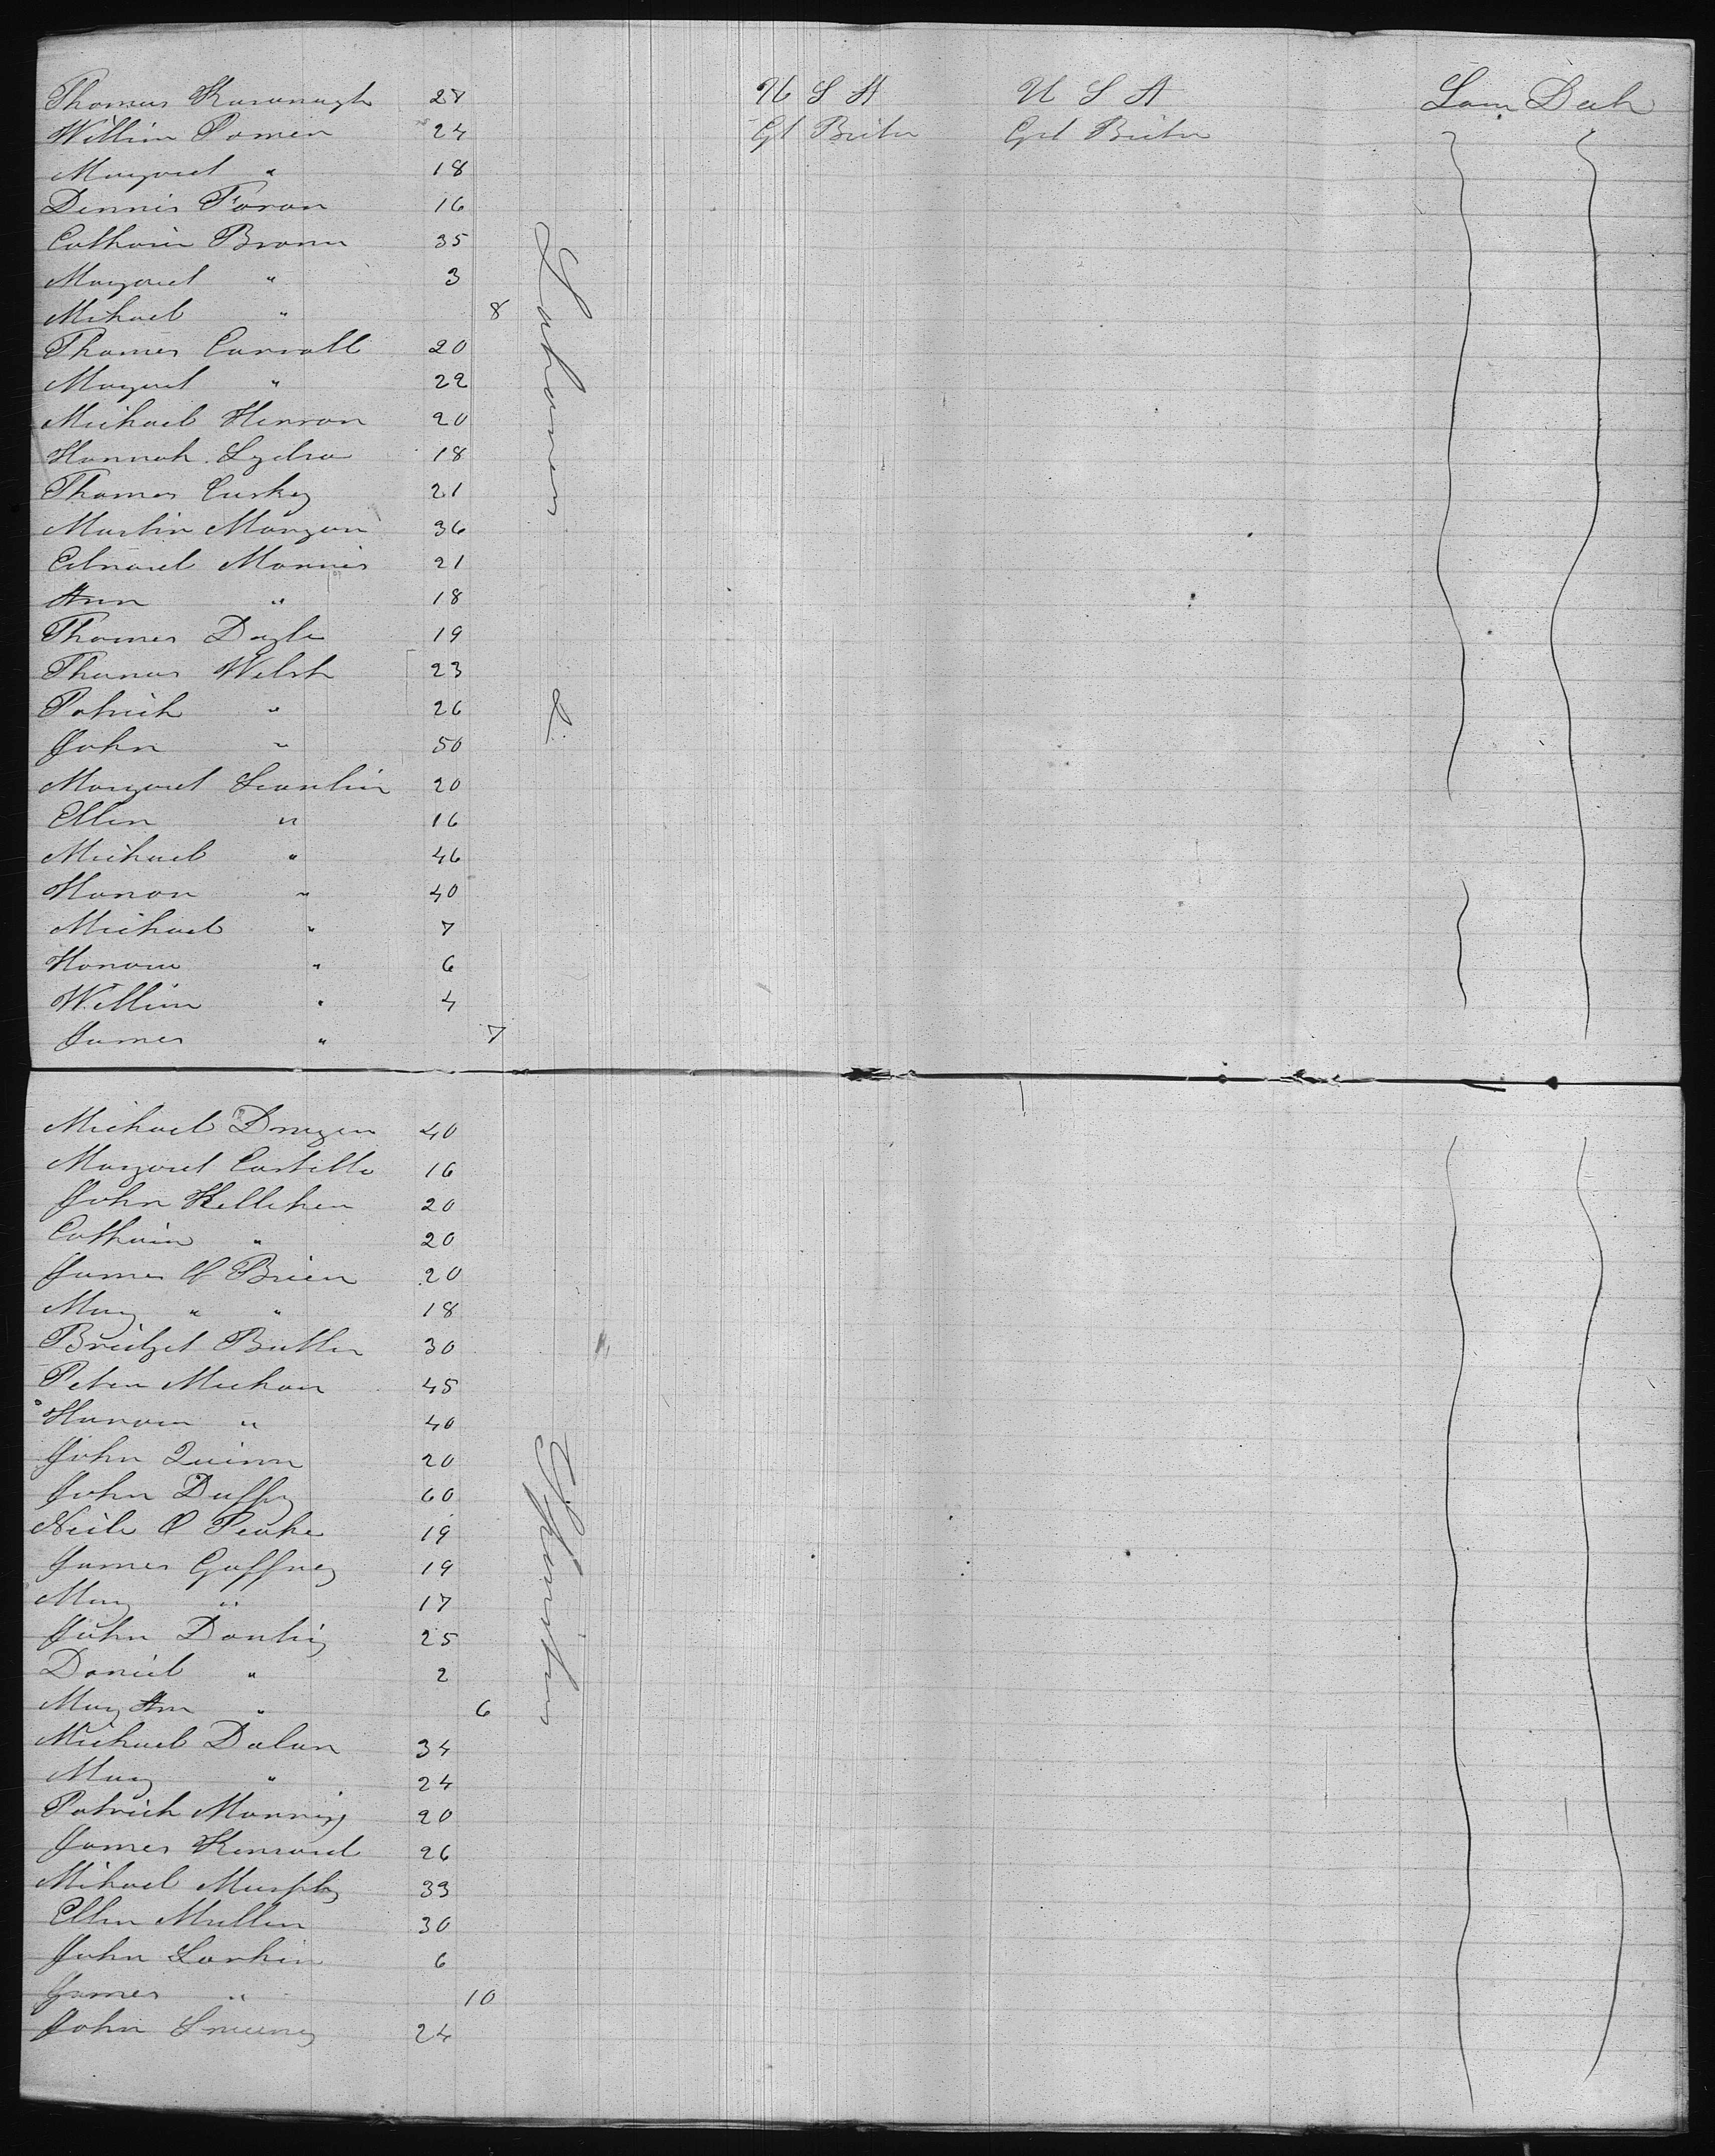 Thomas Kavanagh 28 U S A U S A Low Deck
William Pomen 24 Gt Britn Grt Britn
Margaret " 18
Dennis Foran 16
Catharin Brown 35
Margaret " 3
Mihael " 8
Thomas Carroll 20
Margaret " 22
Michael Herron 20
Hannah Lydra 18
Thomas Cuskey 21
Martin Morgan 36
Edward Mannis 21
Ann " 18
Thomas Doyle 19
Thomas Welsh 23
Patrick " 26
John " 50
Margaret Scanlin 20
Ellen " 16
Michael " 46
Honon " 40
Michael " 7
Honora " 6
William " 4
James " 7
Labourers &
Michael 40
Margaret Costello 16
John Kellehen 20
Catharin " 20
James O Brien 20
Mary " " 18
Bridget Butler 30
Peter Meehan 45
Honora " 40
John Quinn 20
John Duffy 60
Neile O 19
James Gaffney 19
Mary " 17
John Donliy 25
Daniel " 2
Mary Ann " 6
Michael Dolan 34
Mary " 24
Patrick Manning 20
James 26
Mihael Murphy 33
Ellen Mullen 30
John Larkin 6
James " 10
John Sweeney 24
Spinsters